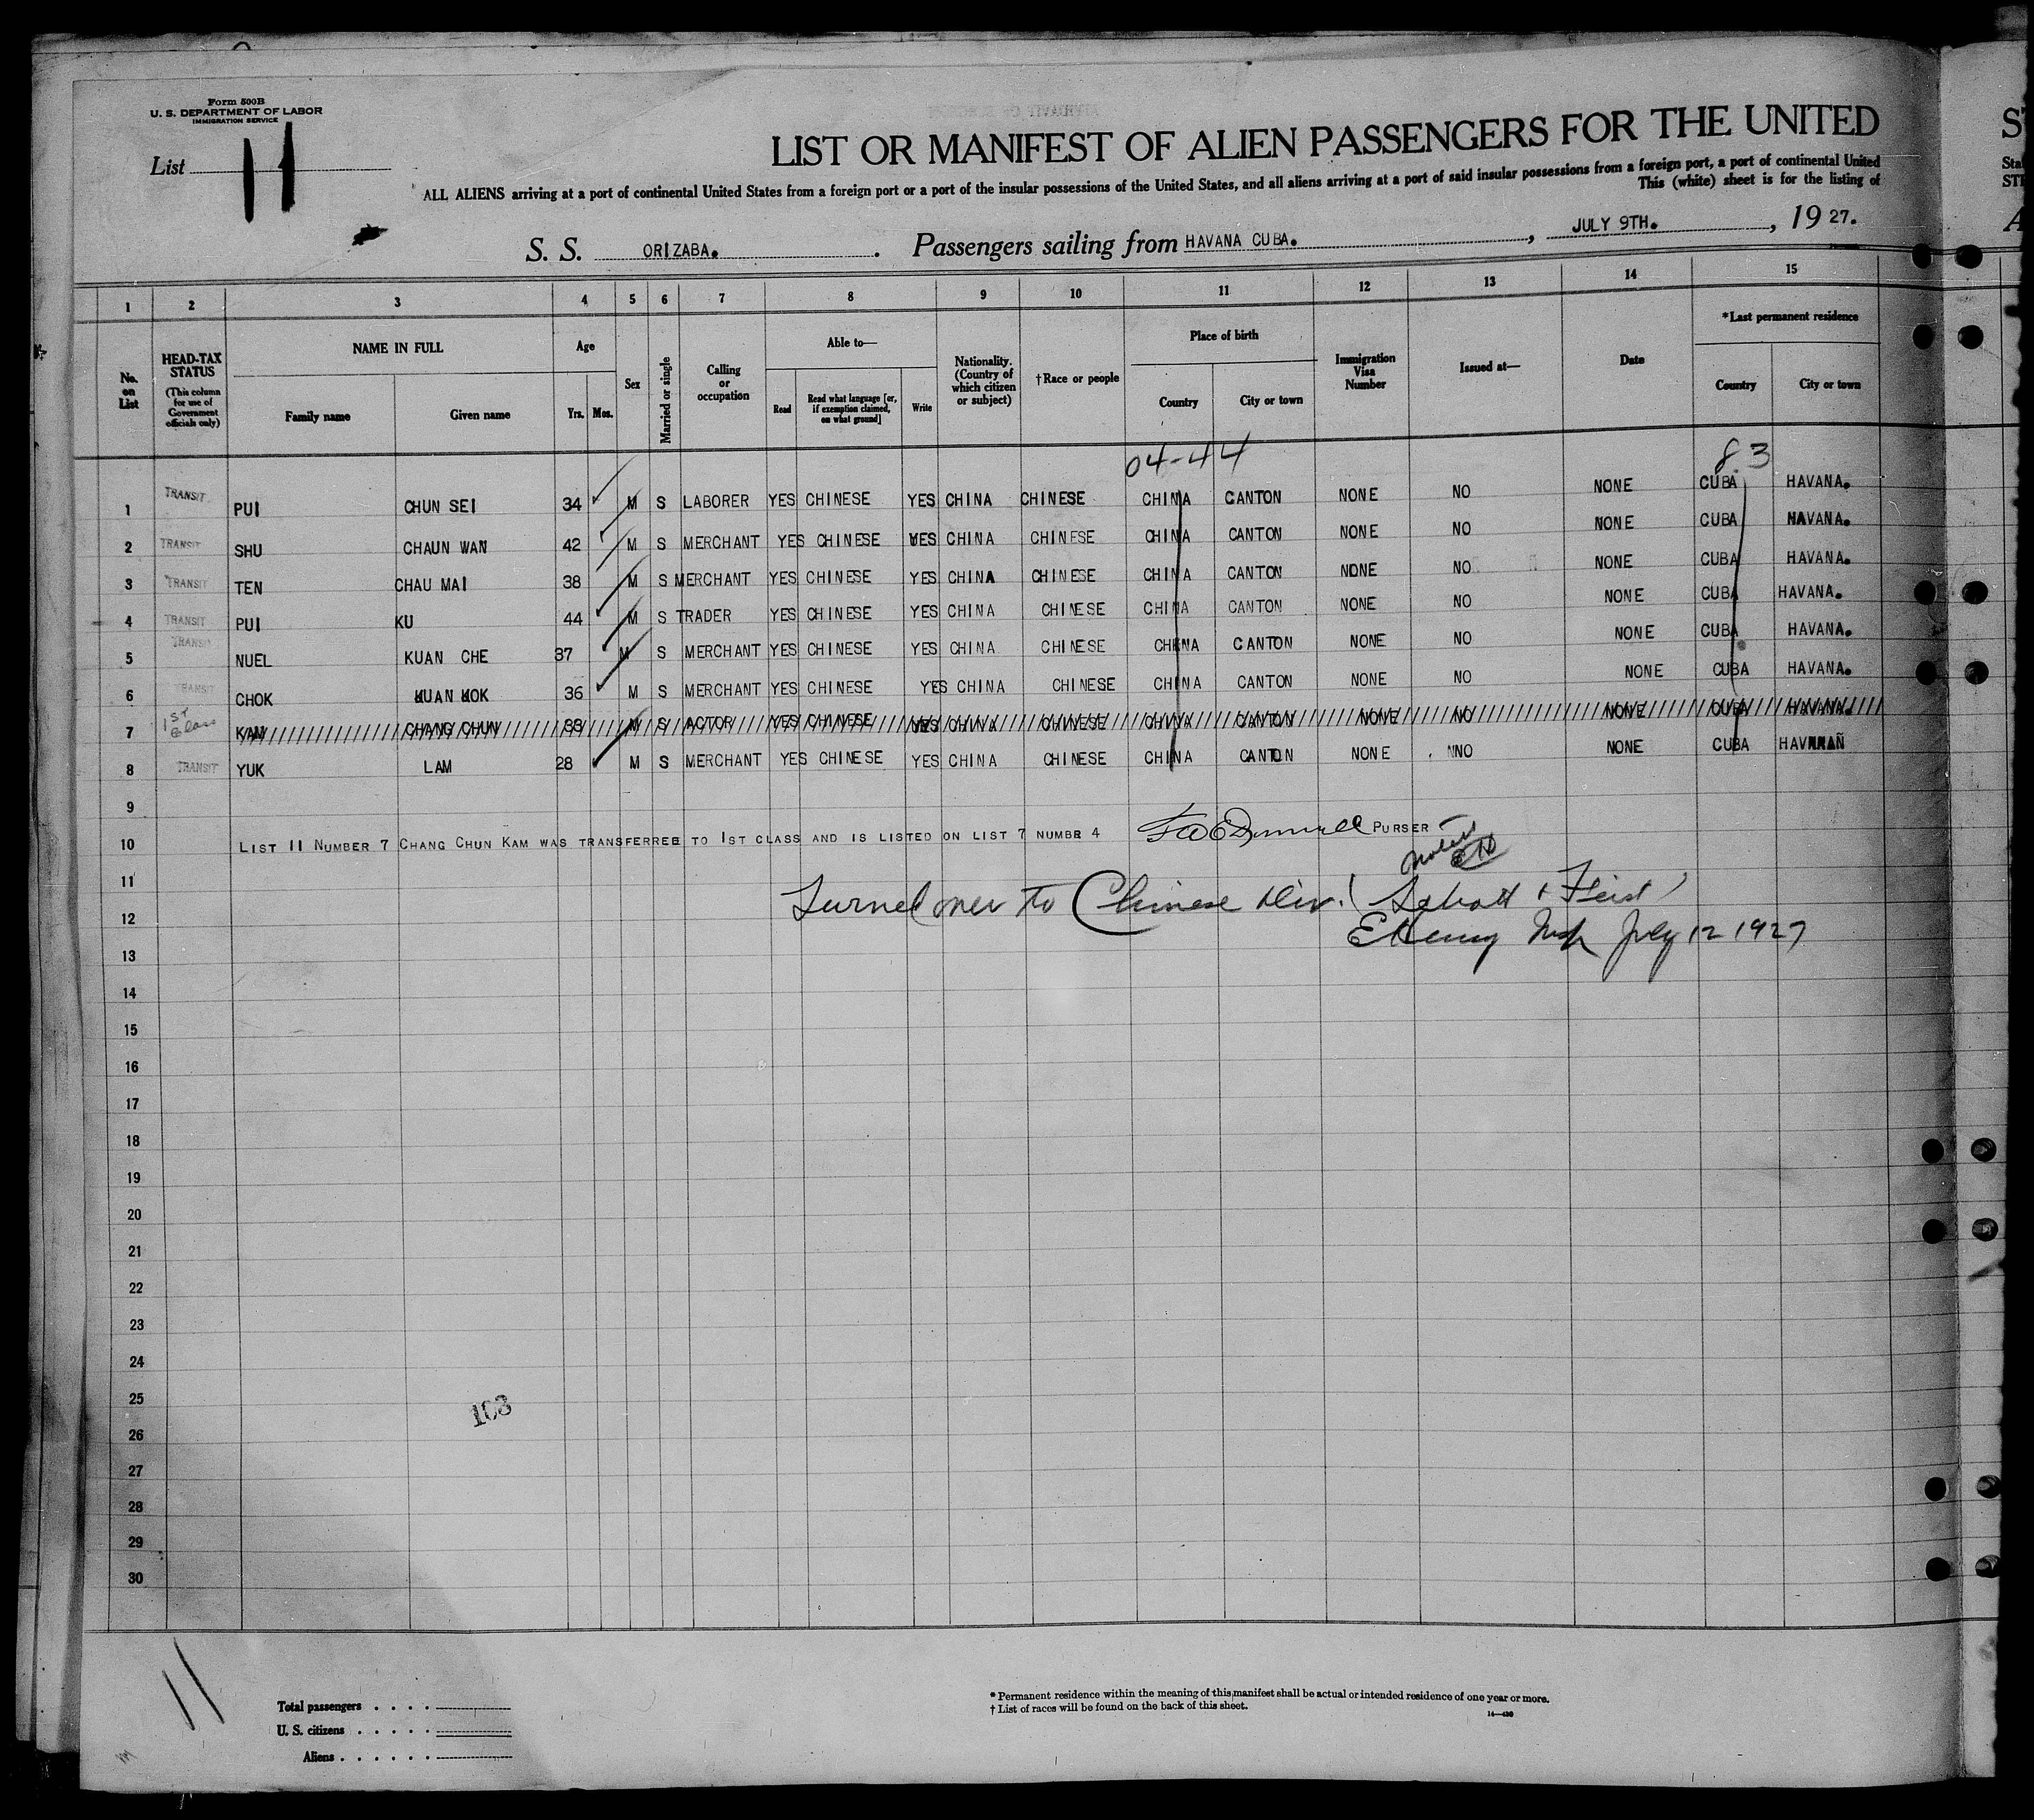 Form 500B
U. S. DEPARTMENT OF LABOR
IMMIGRATION SERVICE
List 11
LIST OR MANIFEST OF ALIEN PASSENGERS FOR THE UNITED
ALL ALIENS arriving at a port of continental United States from a foreign port or a port of the insular possessions of the United States, and all aliens arriving at a port of said insular possessions from a foreign port, a port of continental United
This (white) sheet is for the listing of
S. S. ORIZABA. Passengers sailing from HAVANA CUBA. , JULY 9TH. , 19 27.
1 2 3 4 5 6 7 8 9 10 11 12 13 14 15
No. on List
HEAD-TAX STATUS
(This column for use of Government officials only)
NAME IN FULL
Family name Given name
Age
Yrs. Mos.
Sex
Married or single
Calling or occupation
Able to—
Read Read what language [or, if exemption claimed, on what ground] Write
Nationality. (Country of which citizen or subject)
†Race or people
Place of birth
Country City or town
Immigration Visa Number
Issued at—
Date
*Last permanent residence
Country City or town
04-44 83
1 TRANSIT PUI CHUN SEI 34 M S LABORER YES CHINESE YES CHINA CHINESE CHINA CANTON NONE NO NONE CUBA HAVANA.
2 TRANSIT SHU CHAUN WAN 42 M S MERCHANT YES CHINESE YES CHINA CHINESE CHINA CANTON NONE NO NONE CUBA HAVANA.
3 TRANSIT TEN CHAU MAI 38 M S MERCHANT YES CHINESE YES CHINA CHINESE CHINA CANTON NONE NO NONE CUBA HAVANA.
4 TRANSIT PUI KU 44 M S TRADER YES CHINESE YES CHINA CHINESE CHINA CANTON NONE NO NONE CUBA HAVANA.
5 TRANSIT NUEL KUAN CHE 37 M S MERCHANT YES CHINESE YES CHINA CHINESE CHINA CANTON NONE NO NONE CUBA HAVANA.
6 TRANSIT CHOK KUAN KOK 36 M S MERCHANT YES CHINESE YES CHINA CHINESE CHINA CANTON NONE NO NONE CUBA HAVANA.
7 1ST Class KAM CHANG CHUN 38 M S ACTOR YES CHINESE YES CHINA CHINESE CHINA CANTON NONE NO NONE CUBA HAVANA.
8 TRANSIT YUK LAM 28 M S MERCHANT YES CHINESE YES CHINA CHINESE CHINA CANTON NONE NNO NONE CUBA
9
10 LIST 11 NUMBER 7 CHANG CHUN KAM WAS TRANSFERRED TO 1ST CLASS AND IS LISTED ON LIST 7 NUMBR 4 PURSER
noted
11
Turned over to Chinese Div.
12
July 12 1927
13
14
15
16
17
18
19
20
21
22
23
24
25
103
26
27
28
29
30
11
Total passengers
U. S. citizens
Aliens
* Permanent residence within the meaning of this manifest shall be actual or intended residence of one year or more.
† List of races will be found on the back of this sheet.
14—430